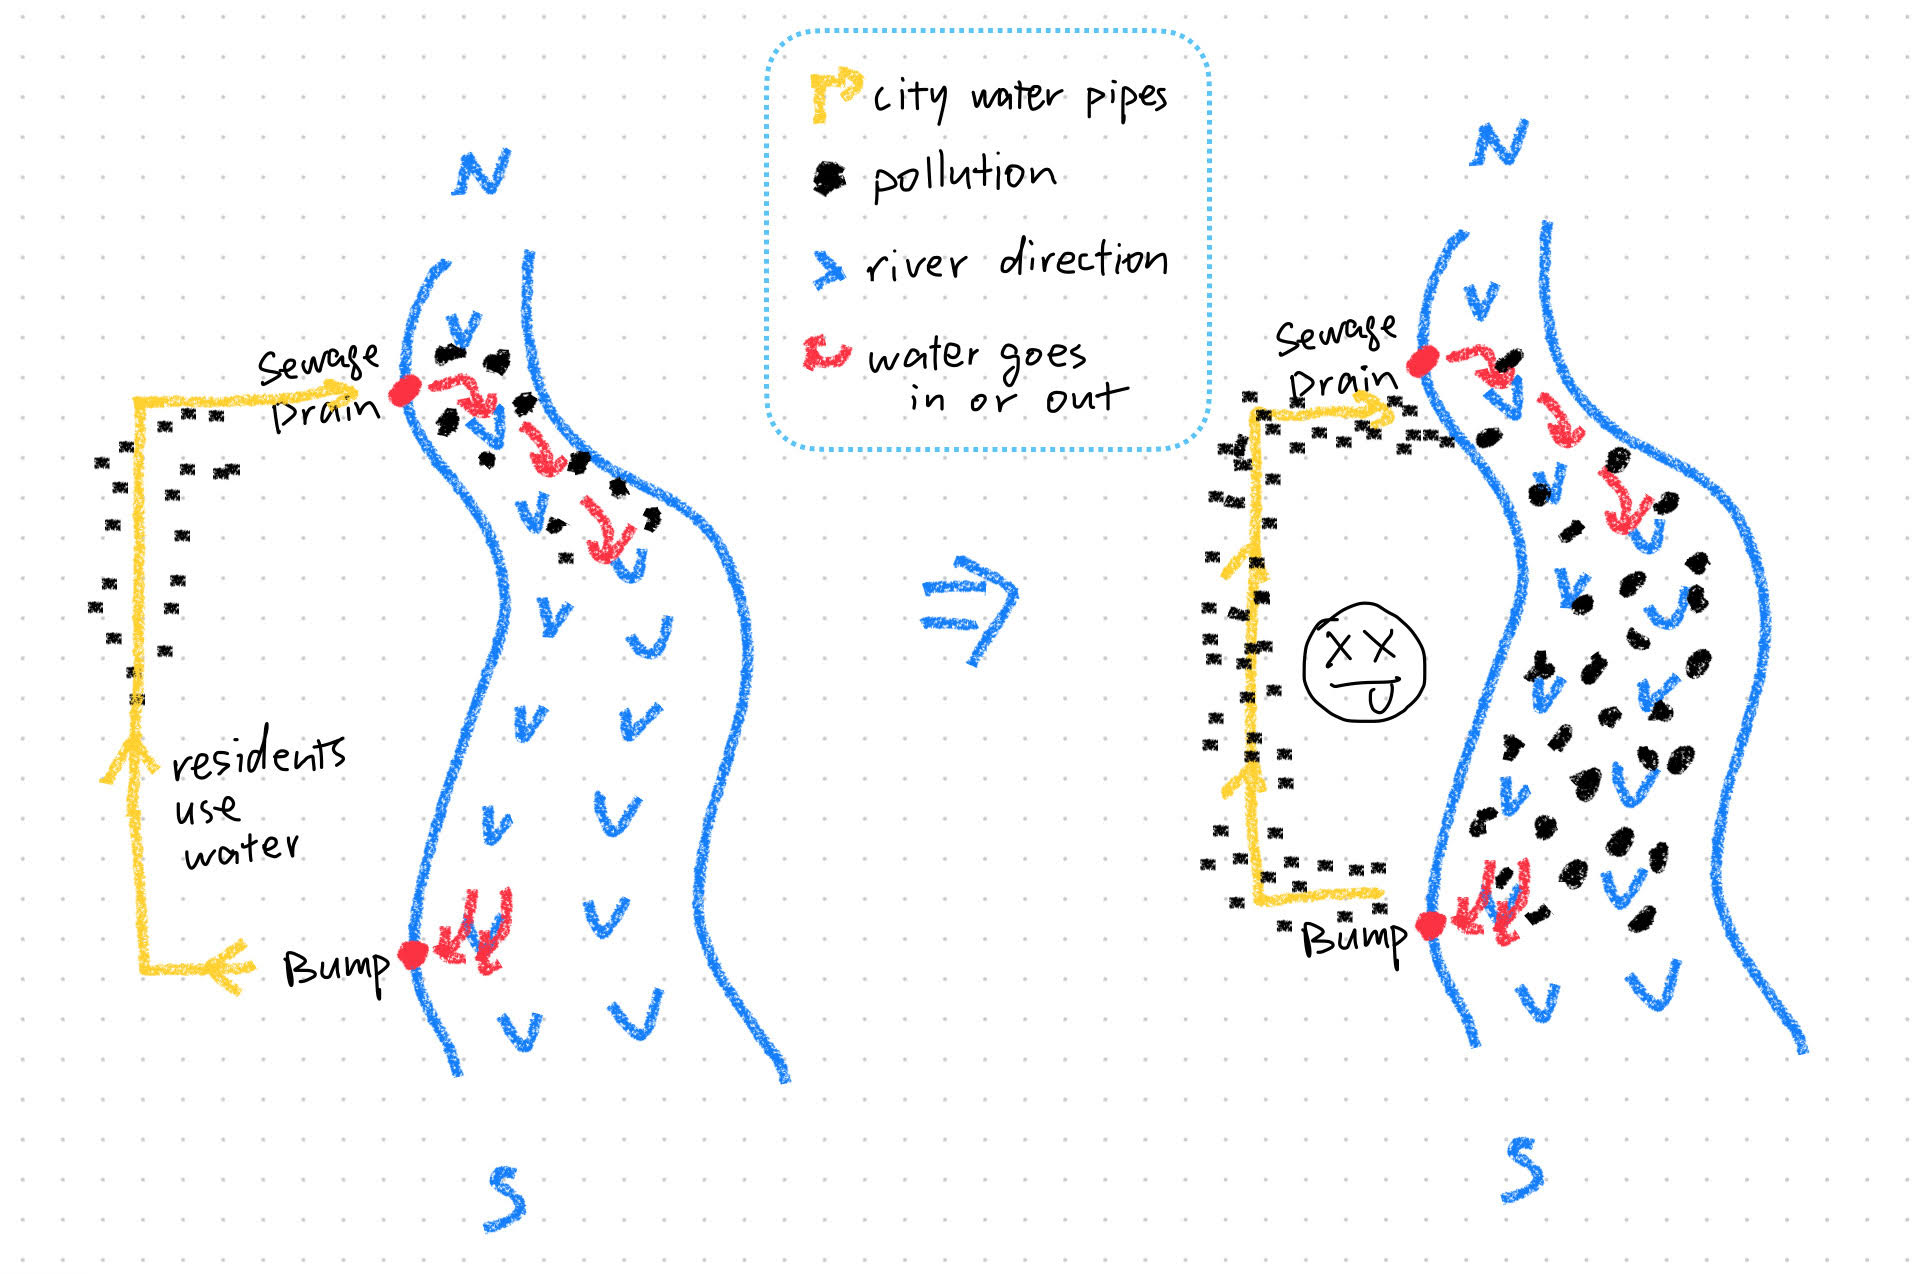 city water pipes
pollution
river direction
water goes
in or out
N
Sewage
Drain
residents
use
water
Bump
S
N
Sewage
Drain
Bump
S